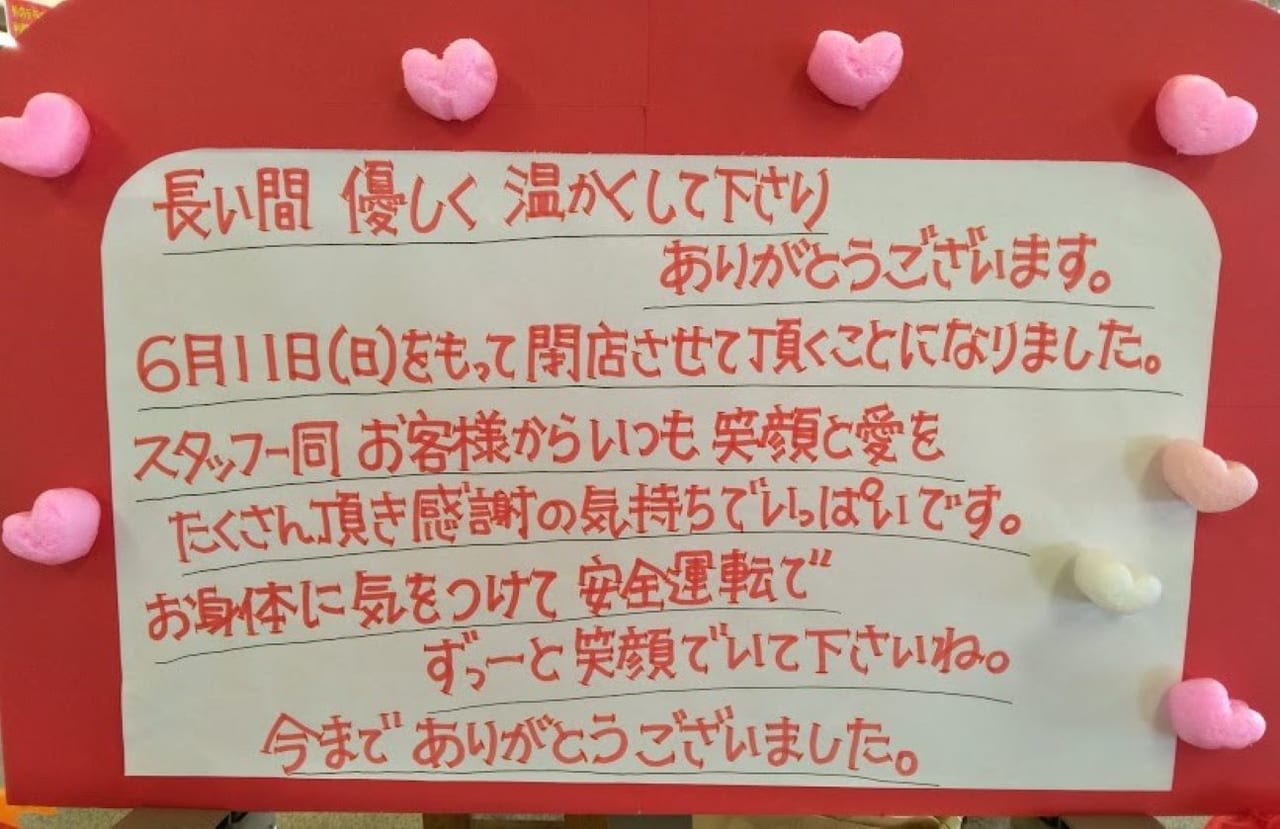 長い間 優しく 温かくして下さり
ありがとうございます。
6月11日(日)をもって閉店させて頂くことになりました。
スタッフ一同 お客様からいつも 笑顔と愛を
たくさん頂き感謝の気持ちでいっぱいです。
お身体に気をつけて 安全運転で
ずっーと笑顔でいて下さいね。
今まで ありがとうございました。